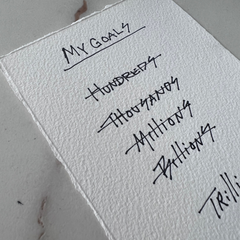 My Goals
Hundreds
Thousands
Millions
Billions
Trilli